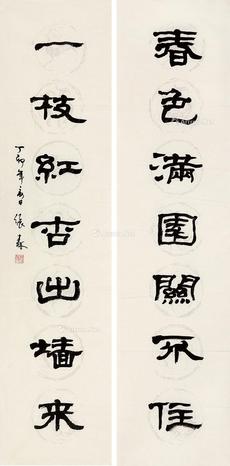 春色滿園關不住
一枝紅杏出墙来
丁卯年
張森